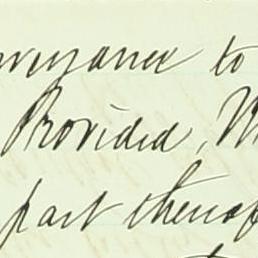 nveyance to
Provided, W
part thereof